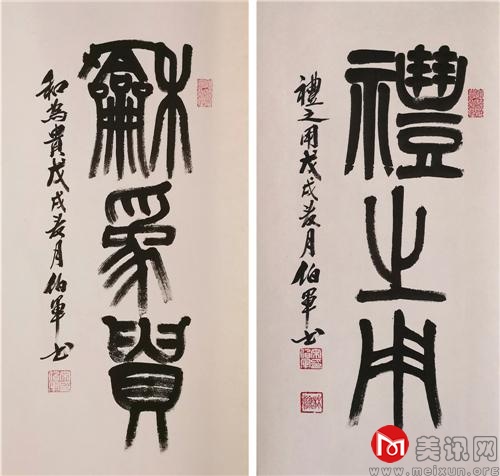 禮之用
禮之用戊戌月伯軍书
龢為貴
和為貴戊戌月伯軍书
美讯网
www.meixun.org